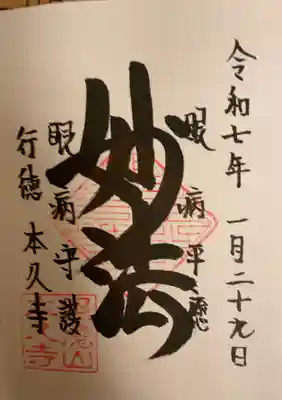 令和七年 一月二十九日
眼病平癒
妙法
眼病守護
行徳 本久寺